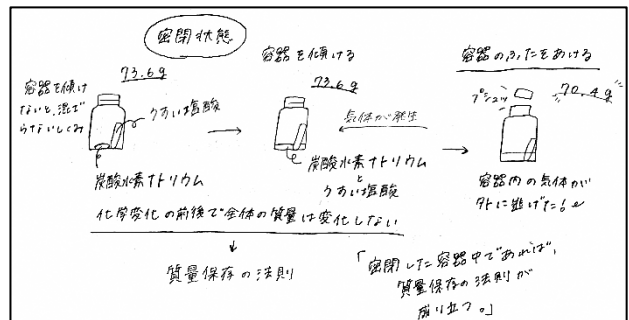 密閉状態
73.6g
容器を傾け
ないと、混ざ
らないしくみ
うすい塩酸
炭酸水素ナトリウム
容器を傾ける
73.6g
気体が発生
炭酸水素ナトリウム
と
うすい塩酸
容器のふたをあける
プシュッ
70.4g
容器内の気体が
外に逃げた!
化学変化の前後で全体の質量は変化しない
質量保存の法則
「密閉した容器中であれば、
質量保存の法則が
成り立つ。」